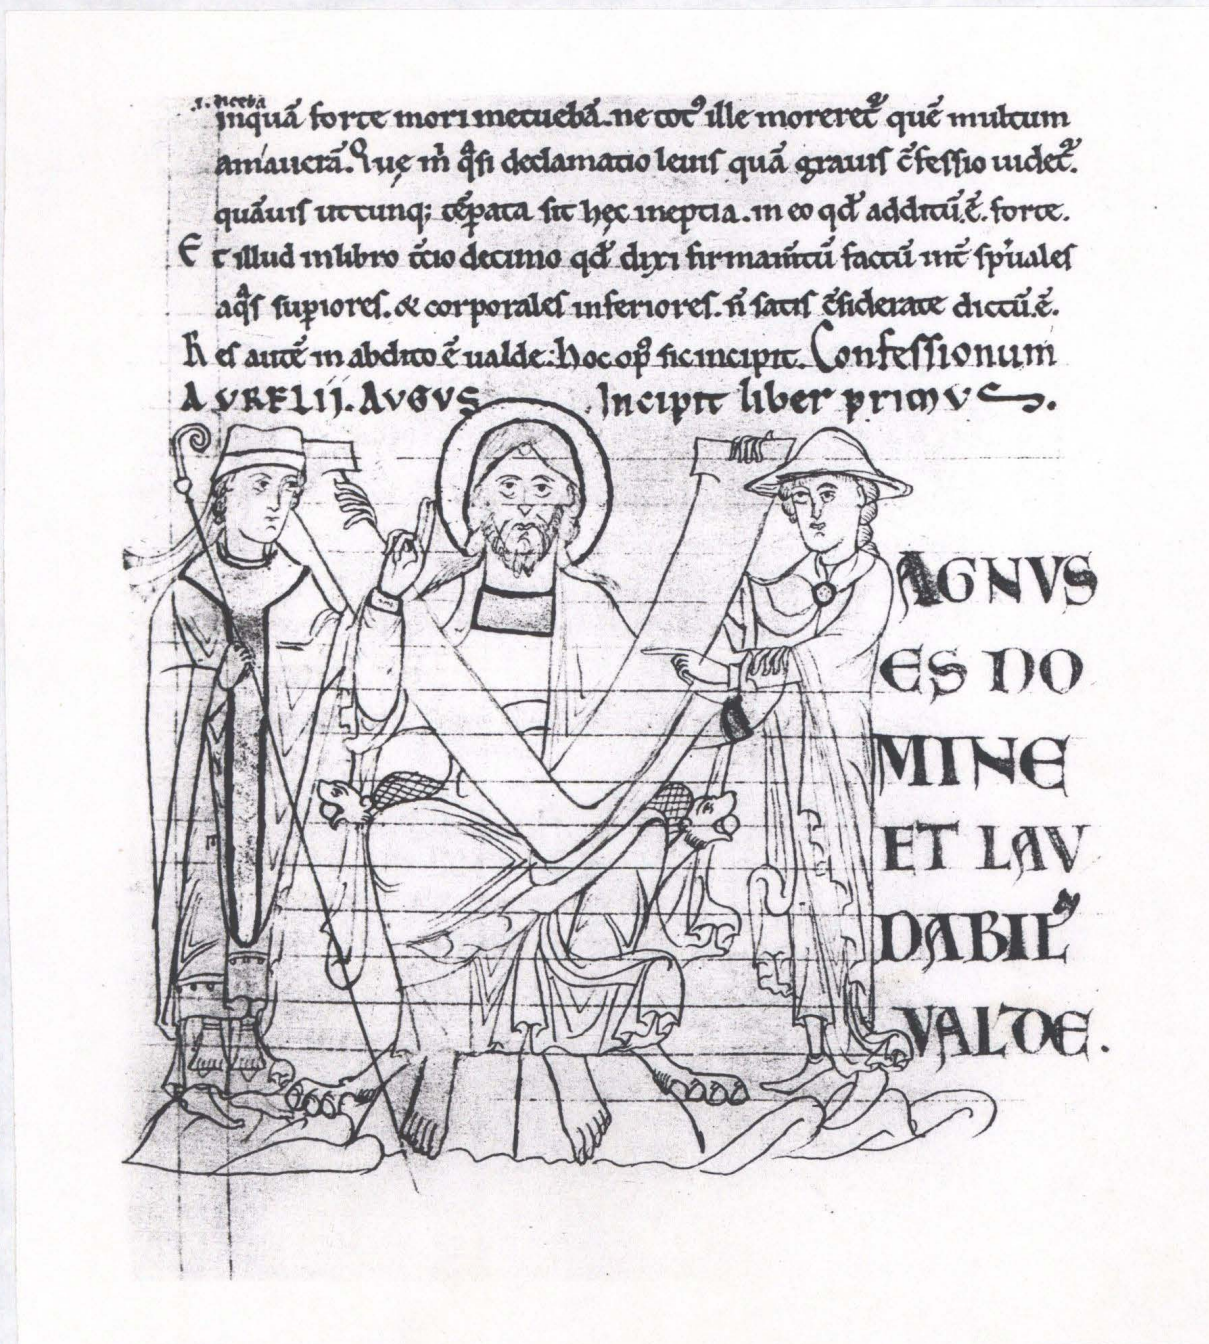 .i. diceba
inquā forte mori metuebā. ne totꝰ ille moreret᷑ quē multum
amauerā. Que m̄ qͣsi declamatio leuis quā grauis c̄fessio uidet᷑.
quāuis utcunq; tēpata sit hęc ineptia. in eo qd̄ additū.ē. forte.
Et illud in libro t̄cio decimo qd̄ dixi firmam̄tū factū int̄ sp̄uales
aqͣs supiores. & corporales inferiores. n̄ satis c̄siderate dictū.ē.
Res autē in abdito ē ualde. hoc op̄ sic incipit. Confessionum
AVRELIJ. AVGVS Incipit liber primVS.
MAGNVS
ES DO
MINE
ET LAV
DABIL᷑
VALDE.